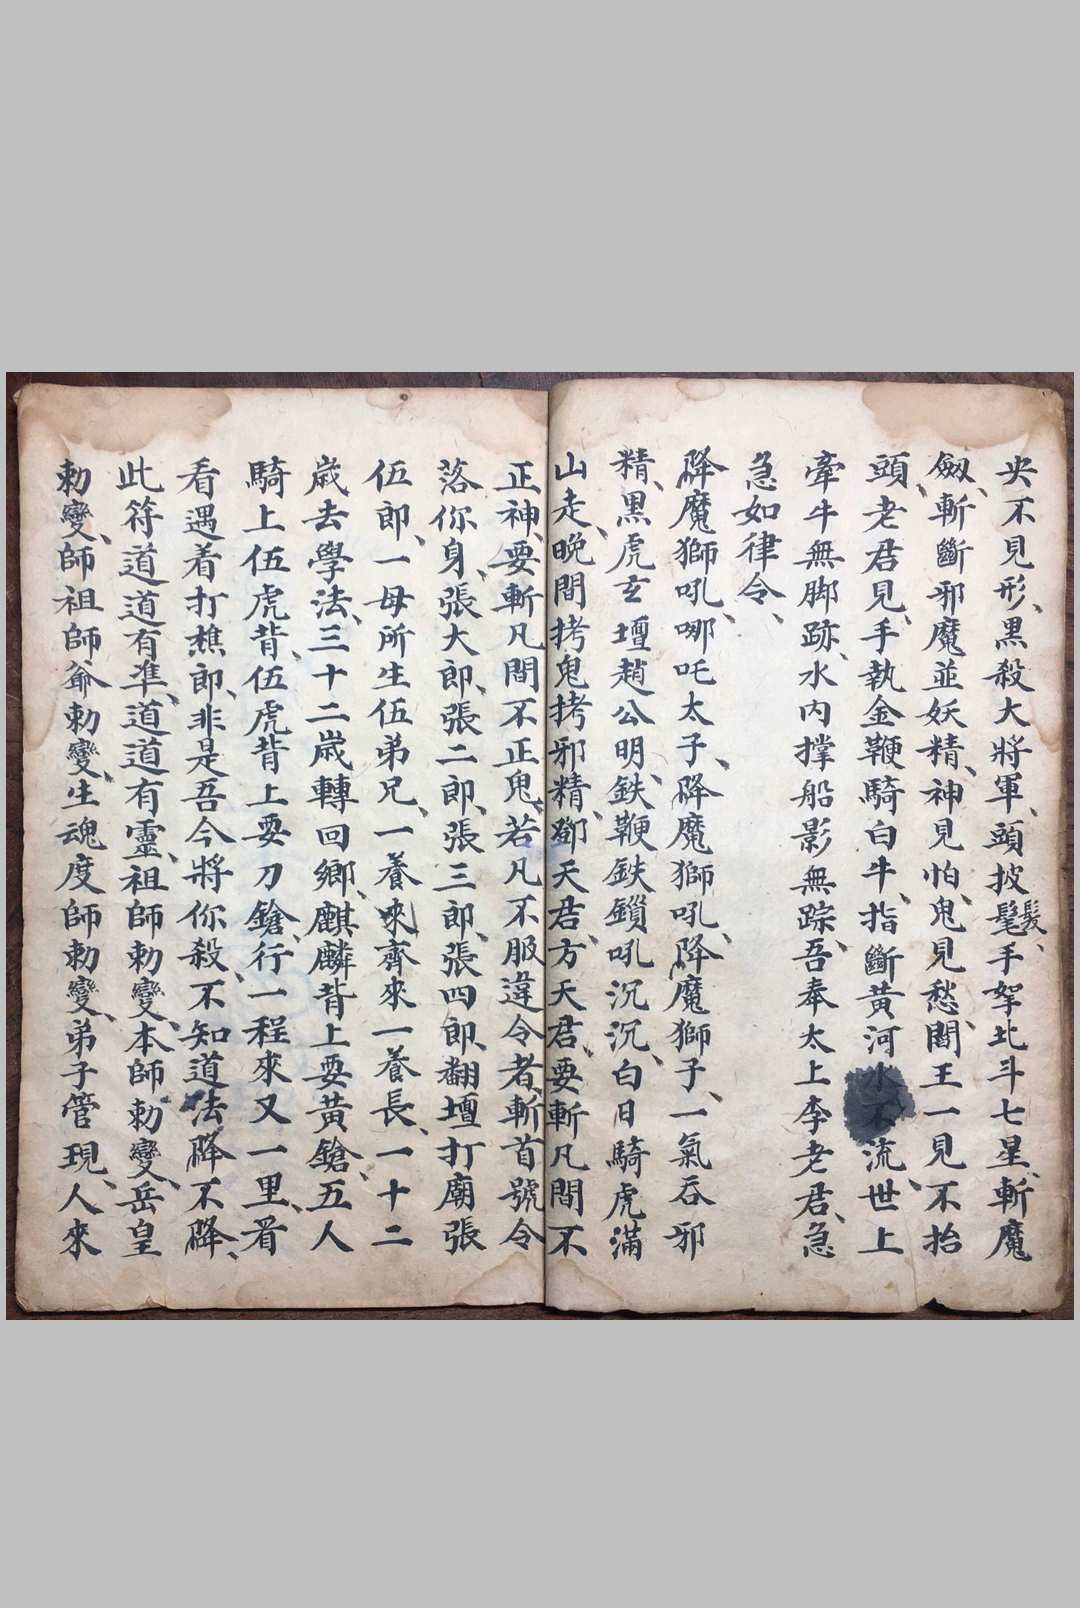 央不見形、黒殺大將軍、頭披髦髮、手拏北斗七星、斬魔
劔、斬斷邪魔並妖精、神見怕、鬼見愁、閻王一見不抬
頭、老君見、手執金鞭騎白牛、指斷黃河水不流、世上
牽牛無脚跡、水内撑船影無踪、吾奉太上李老君、急
急如律令、
降魔獅吼、哪吒太子、降魔獅吼、降魔獅子、一氣吞邪
精、黒虎玄壇趙公明、鉄鞭鉄鎖吼沉沉、白日騎虎滿
山走、晚間拷鬼拷邪精、鄧天君、方天君、要斬凡間不
正神、要斬凡間不正鬼、若凡不服違令者、斬首號令
落你身、張大郎、張二郎、張三郎、張四郎、翻壇打廟張
伍郎、一母所生伍弟兄、一養來齊來一養長、一十二
歲去學法、三十二歲轉回鄉、麒麟背上耍黃鎗、五人
騎上伍虎背、伍虎背上耍刀鎗、行一程來又一里、看
看遇着打樵郎、非是吾今將你殺、不知道法降不降、
此符道道有準、道道有靈、祖師勅變、本師勅變、岳皇
勅變、師祖師爺勅變、生魂度師勅變、弟子管現、人來